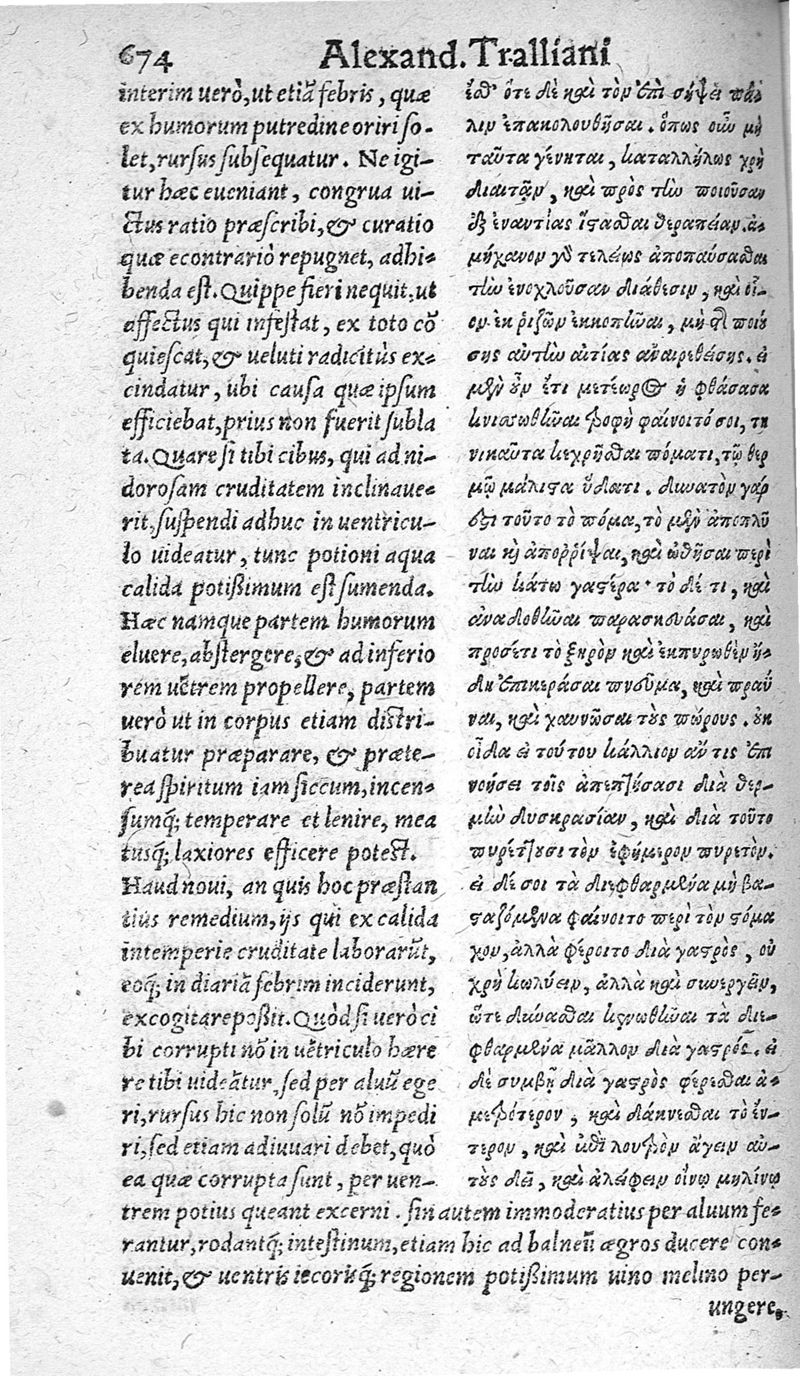 674 Alexand. Tralliani
interim uerò, ut etiã febris, quæ
ex humorum putredine oriri so-
let, rursus subsequatur. Ne igi-
tur hæc eueniant, congrua ui-
ctus ratio præscribi, & curatio
quæ econtrariò repugnet, adhi-
benda est. Quippe fieri nequit, ut
affectus qui infestat, ex toto cõ
quiescat, & ueluti radicitùs ex-
cindatur, ubi causa quæ ipsum
efficiebat, prius non fuerit subla
ta. Quare si tibi cibus, qui ad ni-
dorosam cruditatem inclinaue-
rit, suspendi adhuc in uentricu-
lo uideatur, tunc potioni aqua
calida potißimum est sumenda.
Hæc namque partem humorum
eluere, abstergere, & ad inferio
rem uẽtrem propellere, partem
uerò ut in corpus etiam distri-
buatur præparare, & præte-
rea spiritum iam siccum, incen-
sumq́; temperare et lenire, mea
tusq́; laxiores efficere potest.
Haud noui, an quis hoc præstan
tius remedium, ijs qui ex calida
intemperie cruditate laborarũt,
eoq́; in diariã febrim inciderunt,
excogitare poßit. Quòd si uerò ci
bi corrupti nõ in uẽtriculo hære
re tibi uideãtur, sed per aluũ ege
ri, rursus hic non solũ nõ impedi
ri, sed etiam adiuuari debet, quò
ea quæ corrupta sunt, per uen-
trem potius queant excerni. sin autem immoderatius per aluum fe-
rantur, rodantq́; intestinum, etiam hic ad balneũ ægros ducere con-
uenit, & uentris iecorisq́; regionem potißimum uino melino per-
ungere,
ἔσθ' ὅτε δὲ καὶ τὸν ἐπὶ σήψει πά-
λιν ἐπακολουθῆσαι. ὅπως οὖν μὴ
ταῦτα γένηται, καταλλήλως χρὴ
διαιτᾷν, καὶ πρὸς τὴν ποιοῦσαν
ἐξ ἐναντίας ἵστασθαι θεραπείαν. ἀ-
μήχανον γὰρ τελέως ἀποπαύσασθαι
τὴν ἐνοχλοῦσαν διάθεσιν, καὶ οἷ-
ον ἐκ ῥιζῶν ἐκκοπῆναι, μὴ τῆς ποιού
σης αὐτὴν αἰτίας ἀναιρεθείσης. εἰ
μὲν οὖν ἔτι μετέωρος ἡ φθάσασα
κνισσωθῆναι τροφὴ φαίνοιτό σοι, τη
νικαῦτα κεχρῆσθαι πόματι, τῷ θερ
μῷ μάλιστα ὕδατι. δυνατὸν γάρ
ἐστι τοῦτο τὸ πόμα, τὸ μὲν ἀποπλῦ
ναι καὶ ἀπορρίψαι, καὶ ὠθῆσαι περὶ
τὴν κάτω γαστέρα· τὸ δέ τι, καὶ
ἀναδοθῆναι παρασκευάσαι, καὶ
προσέτι τὸ ξηρὸν καὶ ἐκπυρωθὲν ἤ-
δη ἐπικεράσαι πνεῦμα, καὶ πραῧ
ναι, καὶ χαυνῶσαι τοὺς πώρους. οὐκ
οἶδα εἰ τούτου κάλλιον ἄν τις ἐπι
νοήσει τοῖς ἀπεπτήσασι διὰ θερ-
μὴν δυσκρασίαν, καὶ διὰ τοῦτο
πυρέττουσι τὸν ἐφήμερον πυρετόν.
εἰ δέ σοι τὰ διεφθαρμένα μὴ βα-
σταζόμενα φαίνοιτο περὶ τὸν στόμα
χον, ἀλλὰ φέροιτο διὰ γαστρὸς, οὐ
χρὴ κωλύειν, ἀλλὰ καὶ συνεργεῖν,
ὥστε δύνασθαι κενωθῆναι τὰ διε-
φθαρμένα μᾶλλον διὰ γαστρός. εἰ
δὲ συμβῇ διὰ γαστρὸς φέρεσθαι ἀ-
μετρότερον, καὶ δάκνεσθαι τὸ ἔν-
τερον, καὶ ἐπὶ λουτρὸν ἄγειν αὐ-
τοὺς δεῖ, καὶ ἀλείφειν οἴνῳ μηλίνῳ